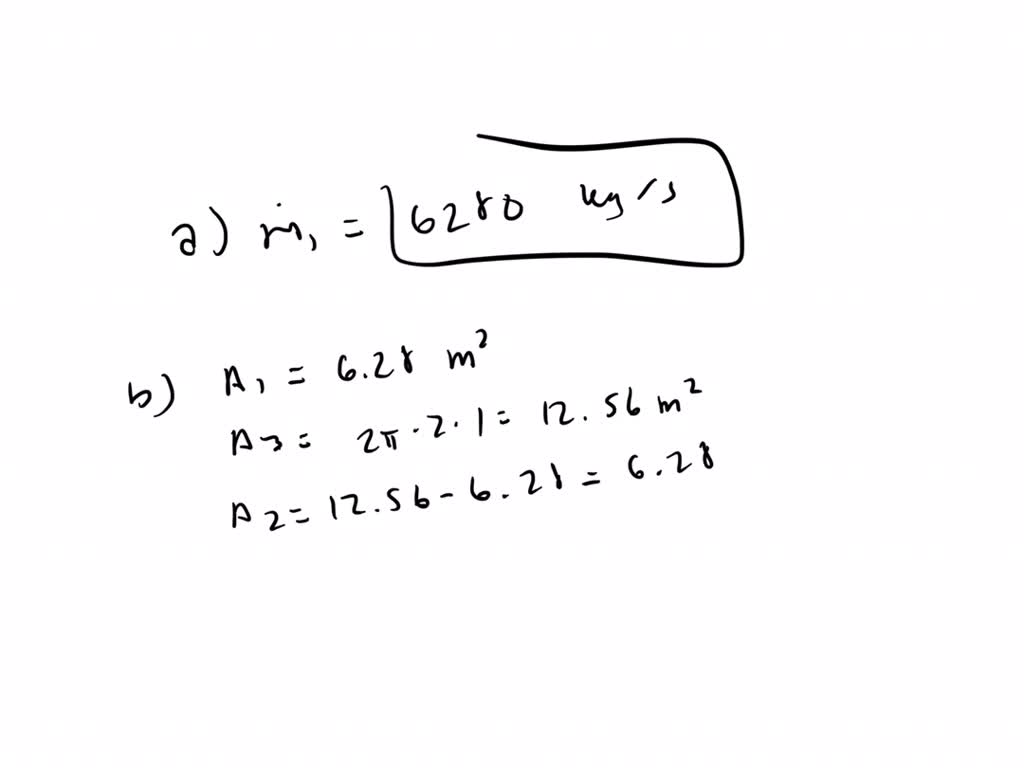 a) ṁ₁ = 6280 kg/s
b) A₁ = 6.28 m²
A₃ = 2π · 2 · 1 = 12.56 m²
A₂ = 12.56 - 6.28 = 6.28